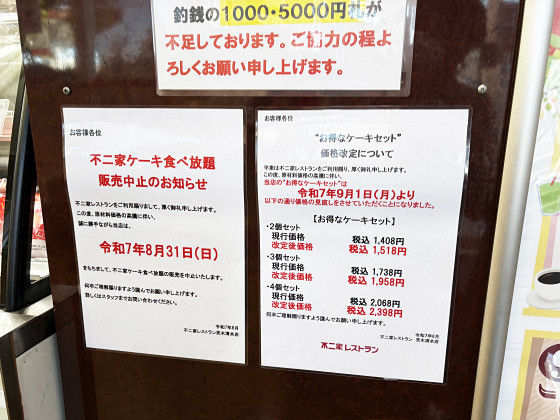 釣銭の1000・5000円札が
不足しております。ご協力の程よ
ろしくお願い申し上げます。
お客様各位
不二家ケーキ食べ放題
販売中止のお知らせ
平素は不二家レストランをご利用賜りまして、厚く御礼申し上げます。
この度、原材料価格の高騰に伴い、
誠に勝手ながら当店は、
令和7年8月31日(日)
をもちまして、不二家ケーキ食べ放題の販売を中止いたします。
何卒ご理解賜りますよう謹んでお願い申し上げます。
詳しくはスタッフまでお問い合わせください。
令和7年8月
不二家レストラン茨木清水店
お客様各位
“お得なケーキセット”
価格改定について
平素は不二家レストランをご利用賜り、厚く御礼申し上げます。
この度、原材料価格の高騰に伴い、
当店の“お得なケーキセット”は
令和7年9月1日(月)より
以下の通り価格の見直しをさせていただくことになりました。
【お得なケーキセット】
・2個セット
現行価格 税込 1,408円
改定後価格 税込 1,518円
・3個セット
現行価格 税込 1,738円
改定後価格 税込 1,958円
・4個セット
現行価格 税込 2,068円
改定後価格 税込 2,398円
何卒ご理解賜りますよう謹んでお願い申し上げます。
令和7年8月
不二家レストラン 茨木清水店
不二家 レストラン